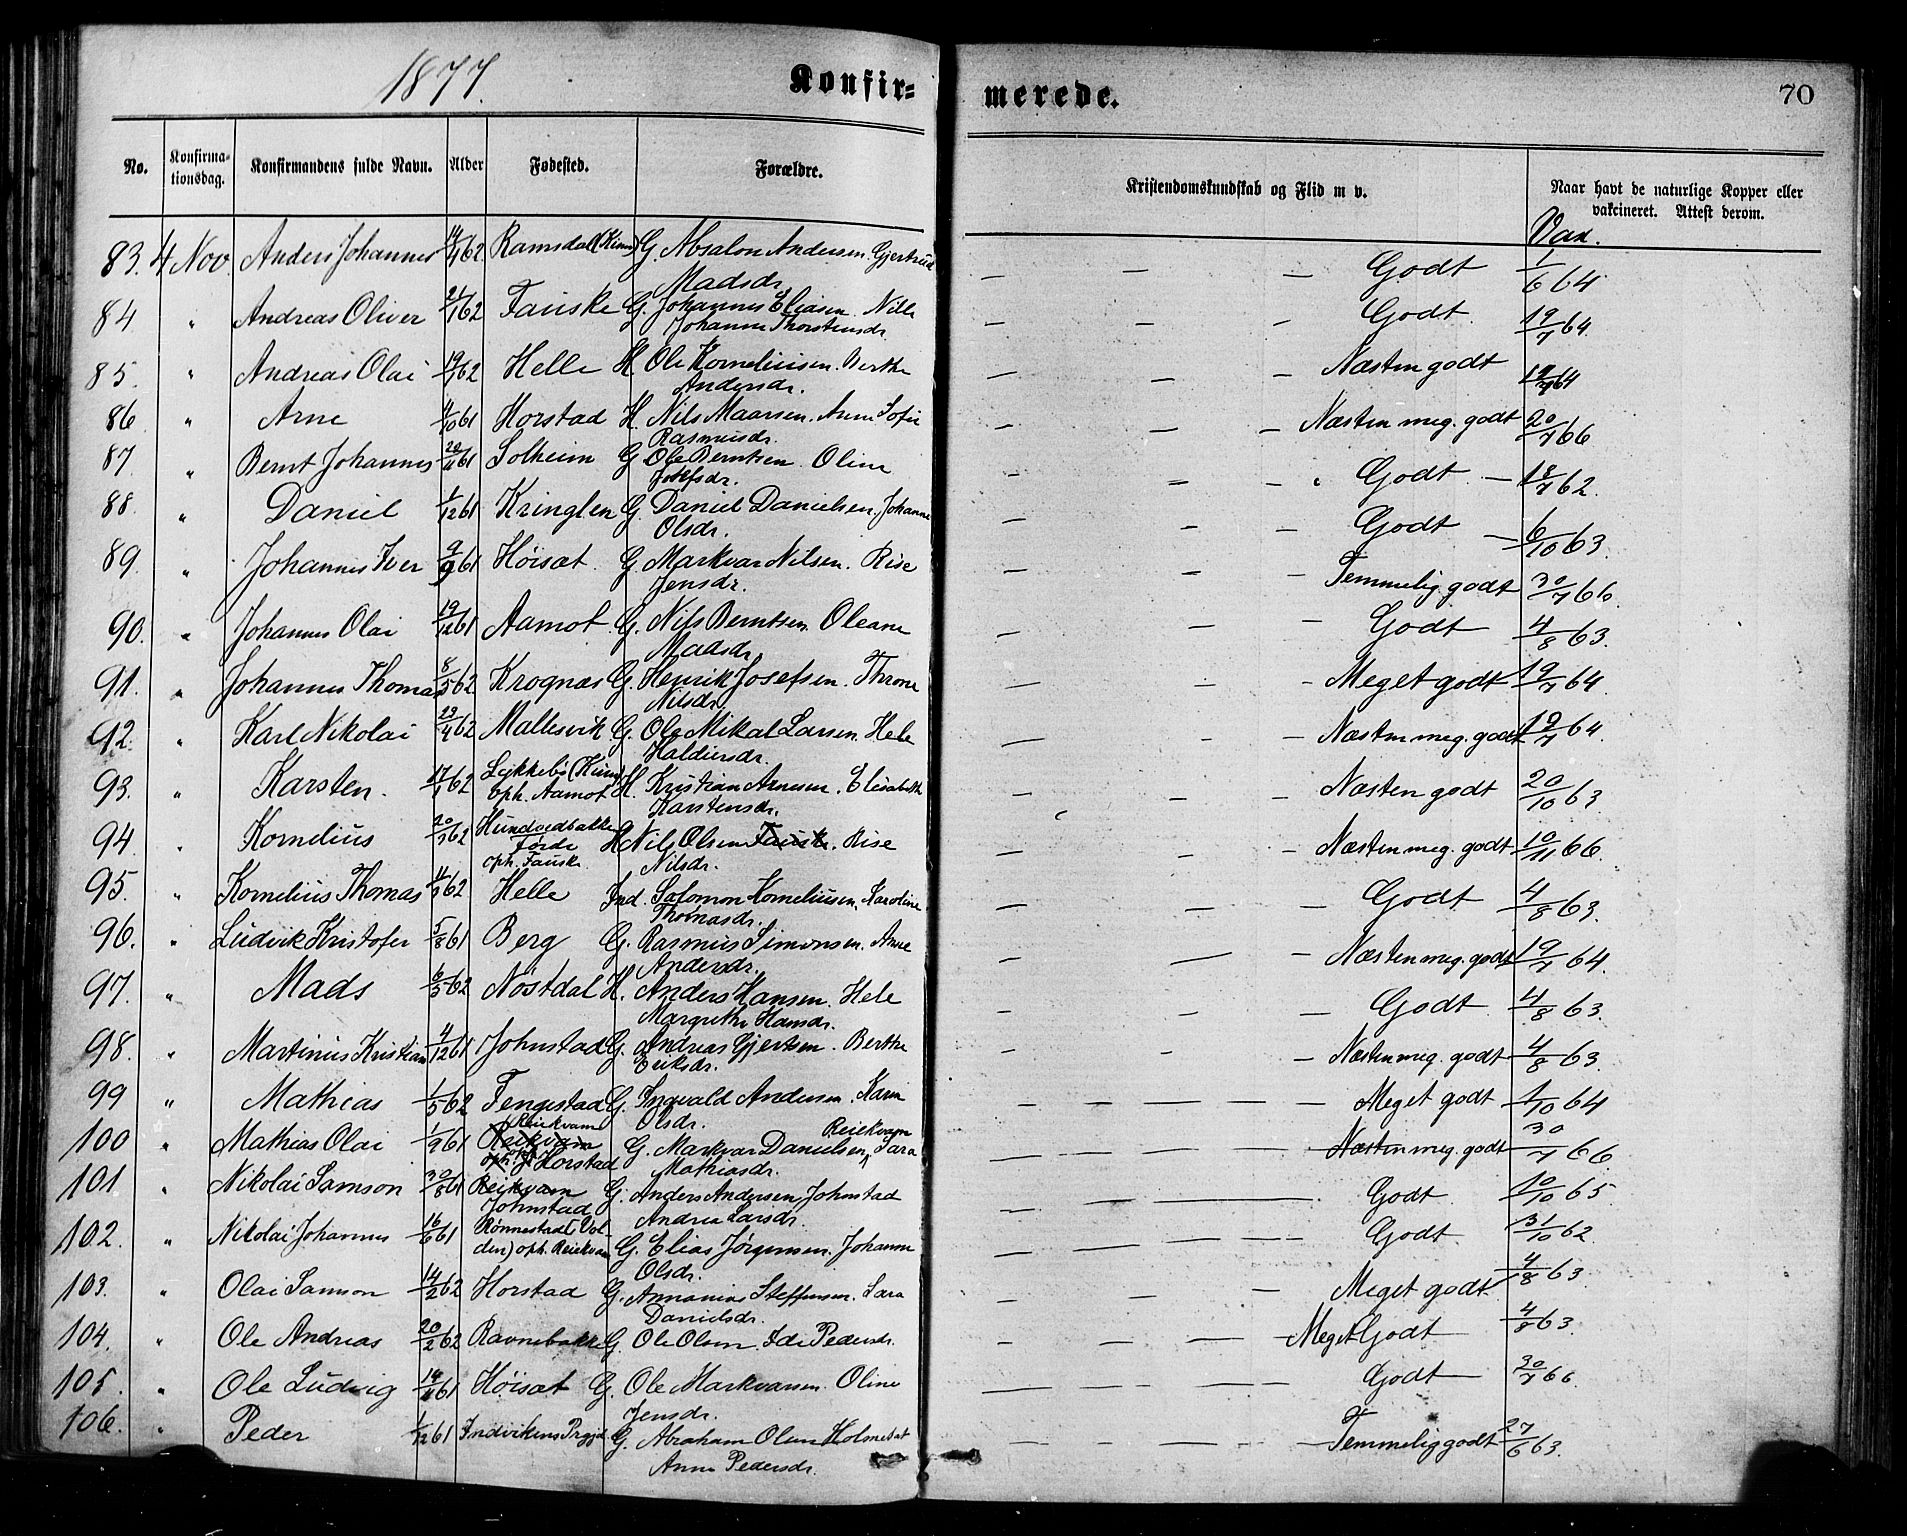 1877.
Konfir=
merede.
70
No.
Konfirma-
tionsdag.
Konfirmandens fulde Navn.
Alder
Fødested.
Forældre.
Kristendomskundskab og Flid m v.
Naar havt de naturlige Kopper eller
vakcineret. Attest derom.
Vax.
83. 4 Nov Anders Johannes 14/4 62 Ramsdal (Kinn) G. Absalon Andersen. Gjertrud — — — Godt 1/6 64
Madsdr
84 " Andreas Oliver 21/1 62 Fauske G. Johannes Eliasen Nille — — — Godt 19/7 64.
Johanne Thorstensdr
85. " Andreas Olai 19/1 62 Helle H Ole Korneliusen. Berthe — — — Næsten godt 19/7 64
Andersdr.
86 " Arne 4/10 61 Horstad H. Nils Maarsen. Anne Sofie — — — Næsten meg. godt 20/7 66
Rasmusdr.
87. " Bernt Johannes 20/11 61 Solheim G Ole Berntsen. Oline — — " Godt — 18/7 62.
Josefsdr.
88. " Daniel 1/12 61 Kringlen G. Daniel Danielsen. Johanne — — — Godt — 6/10 63.
Olsdr.
89. " Johannes Iver 9/9 61 Høisæt. G Markvar Nilsen. Rise — — — Temmelig godt 30/7 66.
Jensdr.
90. " Johannes Olai 19/12 61 Aamot G. Nils Berntsen. Oleane — — — Godt 4/8 63.
Madsdr.
91. " Johannes Thomas 8/5 62 Krognæs G. Henrik Josefsen. Throne — — — Meget godt 19/7 64.
Nilsdr.
92. " Karl Nikolai 23/4 62 Mallesvik G. Ole Mikal Larsen. Hele — — — Næsten meg. godt 19/7 64.
Haldiersdr.
93. " Karsten. 17/1 62 Løkkebø (Kinn) H. Kristian Arnesen. Elisabeth — — — Næsten godt 20/10 63
oph. Aamot Karstensdr.
94. " Kornelius 20/7 62 Hundvedbakke H Nils Olsen Fauske. Rise — — — Næsten meg. godt 10/11 66.
Førde
oph. Fauske Nilsdr.
95. " Kornelius Thomas 11/3 62 Helle Ind. Salomon Korneliusen. Karoline — — — Godt 4/8 63.
Thomasdr.
96. " Ludvik Kristofer 5/8 61 Berg G. Rasmus Simonsen. Anne — — — Næsten meg. godt 19/7 64.
Andersdr.
97. " Mads 6/5 62 Nøstdal H. Anders Hansen. Hele — — — Godt 4/8 63.
Margrethe Hansdr.
98. " Martinus Kristian 4/12 61 Johnstad G. Andreas Gjertsen. Berthe — — — Næsten meg. godt 4/8 63.
Eriksdr.
99 " Mathias 1/5 62 Fengestad G. Ingvald Andersen. Karen — — — — Meget godt 1/10 64
Olsdr.
100 " Mathias Olai 1/9 61 Reiekvam G. Markvar Danielsen, Reiekvam Sara — — — — Næsten meg. godt 30/7 66
oph. på Horstad Mathiasdr.
101 " Nikolai Samson 30/8 61 Reikvam G. Anders Andersen, Johnstad — — — — Godt 10/10 65
Johnstad Andrea Larsdr.
102. " Nikolai Johannes 16/6 61 Rønnestad (Vol- G. Elias Jørgensen. Johanne — — — — Godt 31/10 62
den) oph. Reiekvam Olsdr.
103. " Olai Samson 14/2 62 Horstad G. Annanias Steffensen. Sara — — — Meget godt 4/8 63.
Danielsdr.
104. " Ole Andreas 20/2 62 Ravnebakke G Ole Olsen. Ide Pedersdr. — — — — Meget Godt 4/8 63.
105. " Ole Ludvig 14/11 61 Høisæt G. Ole Markvarsen. Oline — — — — Godt 30/7 66
Jensdr.
106. " Peder 1/12 61 Indvikens Prgjd G. Abraham Olsen Holmesæt — — — — Temmelig godt 27/6 63.
Anne Pedersdr.